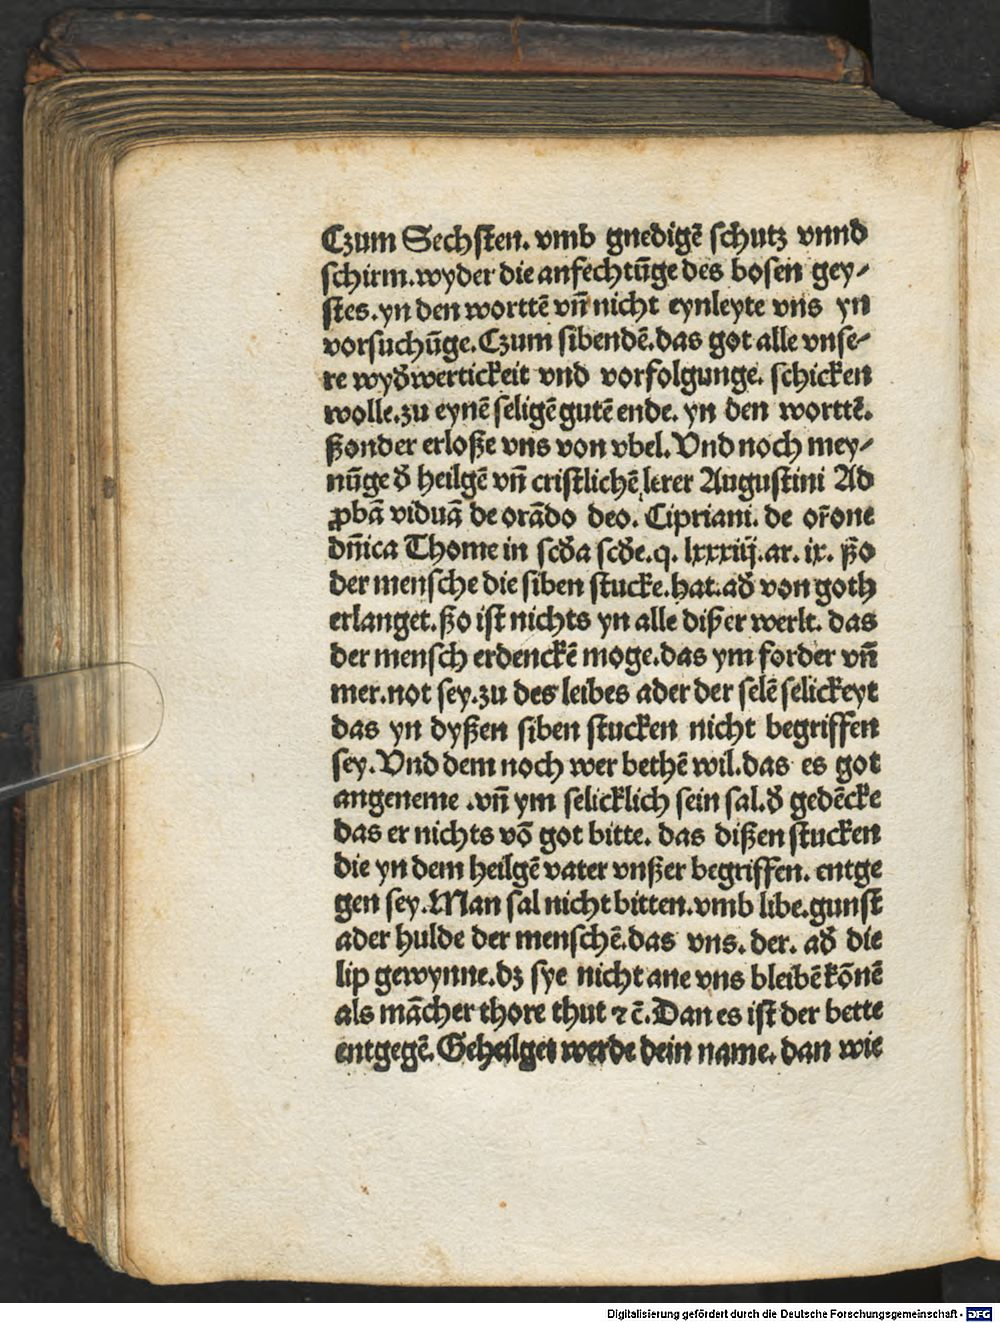 Czum Sechsten. vmb gnedigē schutz vnnd
schirm. wyder die anfechtūge des bosen gey⸗
stes. yn den worttē vn̄ nicht eynleyte vns yn
vorsuchūge. Czum sibendē. das got alle vnse⸗
re wyd̕wertickeit vnd vorfolgunge. schicken
wolle. zu eynē seligē gutē ende. yn den worttē.
ßonder erloße vns von vbel. Vnd noch mey⸗
nūge d̕ heilgē vn̄ cristlichē lerer Augustini Ad
ꝓbā viduā de orādo deo. Cipriani. de or̄one
dn̄ica Thome in scd̕a scd̕e. q. lxxxiij. ar. ix. ßo
der mensche die siben stucke. hat. ad̕ von goth
erlanget. ßo ist nichts yn alle dißer werlt. das
der mensch erdenckē moge. das ym forder vn̄
mer. not sey. zu des leibes ader der selē selickeyt
das yn dyßen siben stucken nicht begriffen
sey. Vnd dem noch wer bethē wil. das es got
angeneme . vn̄ ym selicklich sein sal. d̕ gedēcke
das er nichts vō got bitte. das dißen stucken
die yn dem heilgē vater vnßer begriffen. entge
gen sey. Man sal nicht bitten. vmb libe. gunst
ader hulde der menschē. das vns. der. ad̕ die
lip gewynne. dz sye nicht ane vns bleibē kōnē
als mācher thore thut ⁊ c̄. Dan es ist der bette
entgegē. Geheilget werde dein name. dan wie
Digitalisierung gefördert durch die Deutsche Forschungsgemeinschaft - DFG